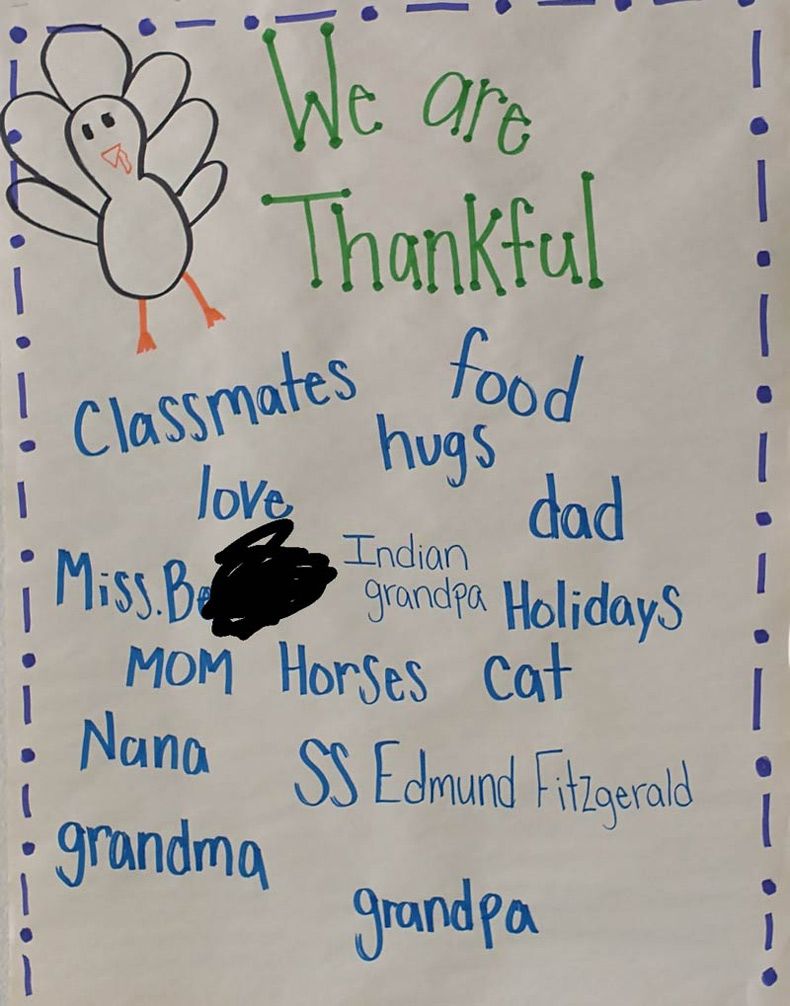 We are
Thankful
Classmates food
hugs
love dad
Miss. Indian
grandpa Holidays
MOM Horses cat
Nana SS Edmund Fitzgerald
grandma
grandpa